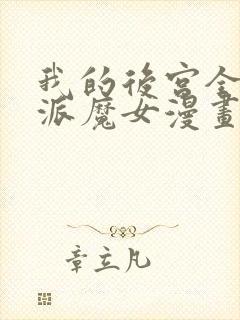 我的後宮全
派魔女漫畫
章立凡